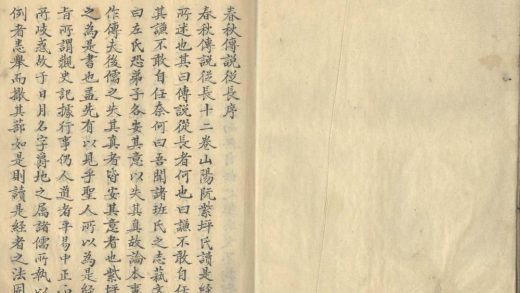 春秋傳說從長序
春秋傳說從長十二卷山陽阮紫坪氏讀是經
所述也其曰傳說從長者何也曰謙不敢自任
其謙不敢自任奈何曰吾聞諸班氏之志蓺文
曰左氏恐弟子各安其意以失其真故論本事
作傳夫後儒之失其真者皆安其意者也紫坪
之為是書也盖先有以見乎聖人所以為是經
者所謂觀史記據行事仍人道者平易中正
所歧惑故于日月名字爵地之属諸儒所執以
例者悉舉而撤其蔀如是則讀是經者之法固